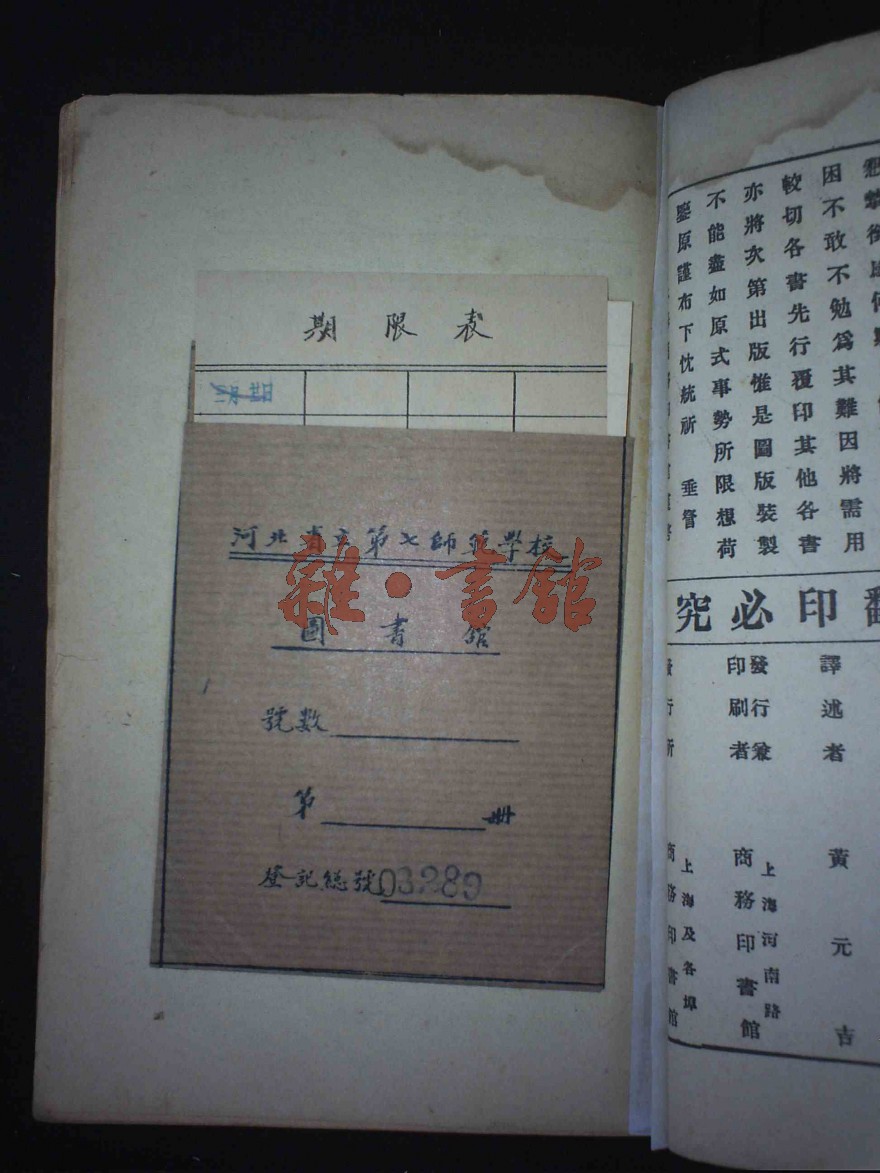 期限表
二月廿日
河北省立第七師範學校
圖書館
號數
第 册
登記總號03289
雜·書館
困不敢不勉爲其難因將需用
較切各書先行覆印其他各書
亦將次第出版惟是圖版裝製
不能盡如原式事勢所限想荷
鑒原謹布下忱統祈 垂詧
翻印必究
譯述者 黃元吉
發行兼印刷者 上海河南路 商務印書館
發行所 上海及各埠 商務印書館